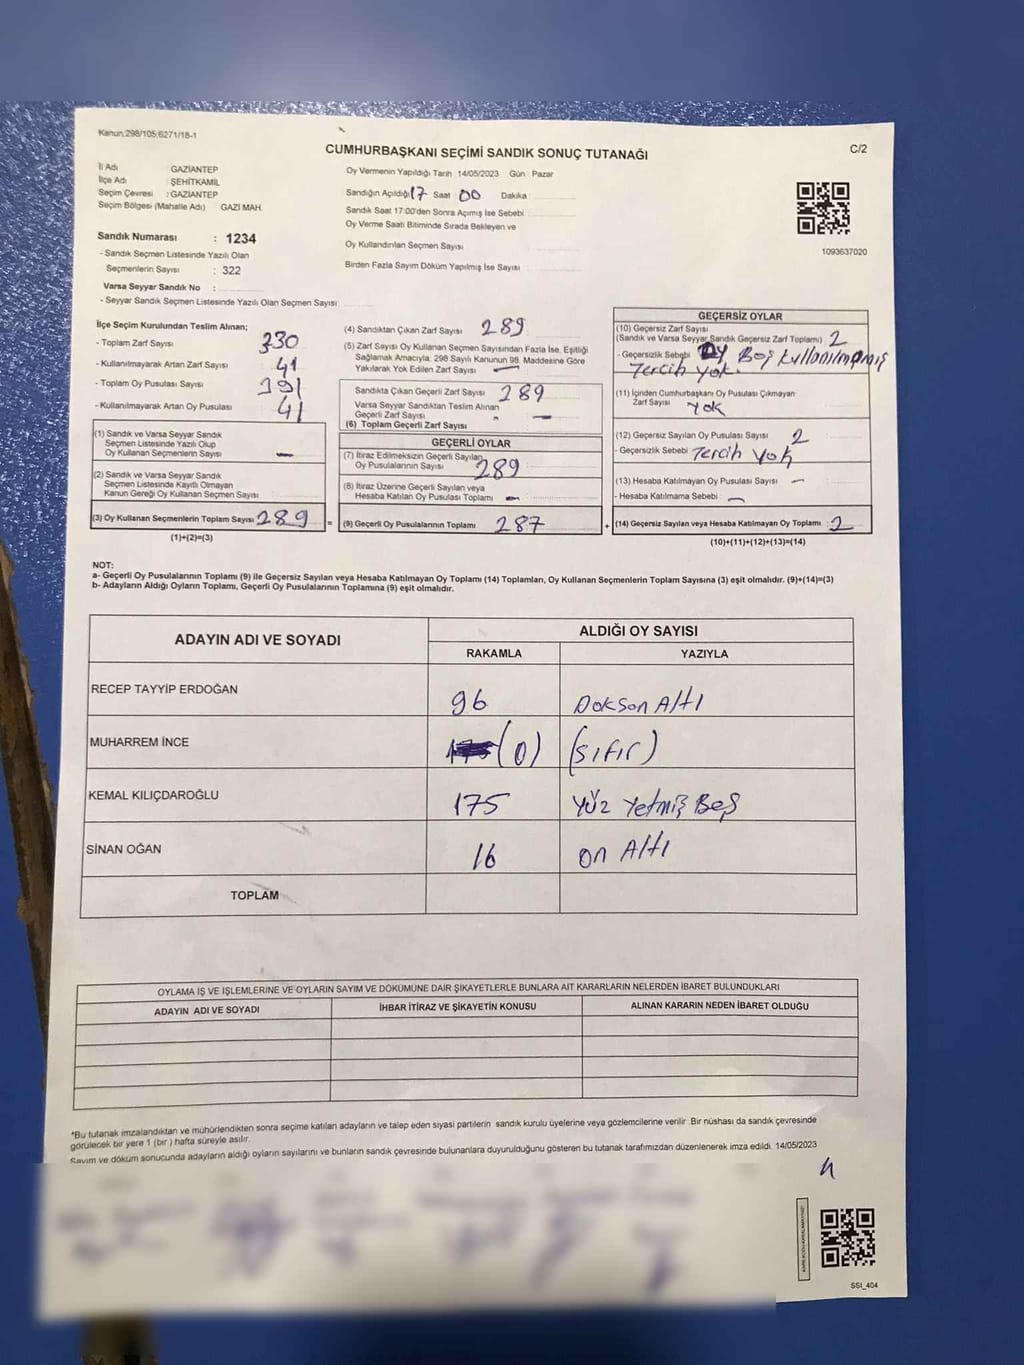 Kanun:298/105;6271/18-1
CUMHURBAŞKANI SEÇİMİ SANDIK SONUÇ TUTANAĞI
C/2
İl Adı GAZİANTEP
İlçe Adı ŞEHİTKAMİL
Seçim Çevresi : GAZİANTEP
Seçim Bölgesi (Mahalle Adı) GAZİ MAH.
Oy Vermenin Yapıldığı Tarih 14/05/2023 Gün : Pazar
Sandığın Açıldığı 17 Saat 00 Dakika
Sandık Saat 17:00'den Sonra Açımış İse Sebebi
Oy Verme Saati Bitiminde Sırada Bekleyen ve
Oy Kullandırılan Seçmen Sayısı
Birden Fazla Sayım Döküm Yapılmış İse Sayısı
1093637020
Sandık Numarası : 1234
- Sandık Seçmen Listesinde Yazılı Olan
Seçmenlerin Sayısı : 322
Varsa Seyyar Sandık No :
- Seyyar Sandık Seçmen Listesinde Yazılı Olan Seçmen Sayısı:
İlçe Seçim Kurulundan Teslim Alınan;
- Toplam Zarf Sayısı 330
- Kullanılmayarak Artan Zarf Sayısı 41
- Toplam Oy Pusulası Sayısı
- Kullanılmayarak Artan Oy Pusulası 41
(1) Sandık ve Varsa Seyyar Sandık
Seçmen Listesinde Yazılı Olup
Oy Kullanan Seçmenlerin Sayısı —
(2) Sandık ve Varsa Seyyar Sandık
Seçmen Listesinde Kayıtlı Olmayan
Kanun Gereği Oy Kullanan Seçmen Sayısı
(3) Oy Kullanan Seçmenlerin Toplam Sayısı 289 =
(1)+(2)=(3)
(4) Sandıktan Çıkan Zarf Sayısı 289
(5) Zarf Sayısı Oy Kullanan Seçmen Sayısından Fazla İse, Eşitliği
Sağlamak Amacıyla; 298 Sayılı Kanunun 98. Maddesine Göre
Yakılarak Yok Edilen Zarf Sayısı —
Sandıkta Çıkan Geçerli Zarf Sayısı 289
Varsa Seyyar Sandıktan Teslim Alınan
Geçerli Zarf Sayısı —
(6) Toplam Geçerli Zarf Sayısı
GEÇERLİ OYLAR
(7) İtiraz Edilmeksizin Geçerli Sayılan
Oy Pusulalarının Sayısı 289
(8) İtiraz Üzerine Geçerli Sayılan veya
Hesaba Katılan Oy Pusulası Toplamı —
(9) Geçerli Oy Pusulalarının Toplamı 287 +
GEÇERSİZ OYLAR
(10) Geçersiz Zarf Sayısı
(Sandık ve Varsa Seyyar Sandık Geçersiz Zarf Toplamı) 2
- Geçersizlik Sebebi Oy Boş kullanılmamış
Tercih yok.
(11) İçinden Cumhurbaşkanı Oy Pusulası Çıkmayan
Zarf Sayısı yok
(12) Geçersiz Sayılan Oy Pusulası Sayısı 2
- Geçersizlik Sebebi Tercih yok
(13) Hesaba Katılmayan Oy Pusulası Sayısı —
- Hesaba Katılmama Sebebi —
(14) Geçersiz Sayılan veya Hesaba Katılmayan Oy Toplamı : 2
(10)+(11)+(12)+(13)=(14)
NOT:
a- Geçerli Oy Pusulalarının Toplamı (9) ile Geçersiz Sayılan veya Hesaba Katılmayan Oy Toplamı (14) Toplamları, Oy Kullanan Seçmenlerin Toplam Sayısına (3) eşit olmalıdır. (9)+(14)=(3)
b- Adayların Aldığı Oyların Toplamı, Geçerli Oy Pusulalarının Toplamına (9) eşit olmalıdır.
ADAYIN ADI VE SOYADI ALDIĞI OY SAYISI
RAKAMLA YAZIYLA
RECEP TAYYİP ERDOĞAN 96 Doksan Altı
MUHARREM İNCE (0) (sıfır)
KEMAL KILIÇDAROĞLU 175 Yüz Yetmiş Beş
SİNAN OĞAN 16 on Altı
TOPLAM
OYLAMA İŞ VE İŞLEMLERİNE VE OYLARIN SAYIM VE DÖKÜMÜNE DAİR ŞİKAYETLERLE BUNLARA AİT KARARLARIN NELERDEN İBARET BULUNDUKLARI
ADAYIN ADI VE SOYADI İHBAR İTİRAZ VE ŞİKAYETİN KONUSU ALINAN KARARIN NEDEN İBARET OLDUĞU
*Bu tutanak imzalandıktan ve mühürlendikten sonra seçime katılan adayların ve talep eden siyasi partilerin sandık kurulu üyelerine veya gözlemcilerine verilir .Bir nüshası da sandık çevresinde
görülecek bir yere 1 (bir ) hafta süreyle asılır.
Sayım ve döküm sonucunda adayların aldığı oyların sayılarını ve bunların sandık çevresinde bulunanlara duyurulduğunu gösteren bu tutanak tarafımızdan düzenlenerek imza edildi. 14/05/2023
SSI_404